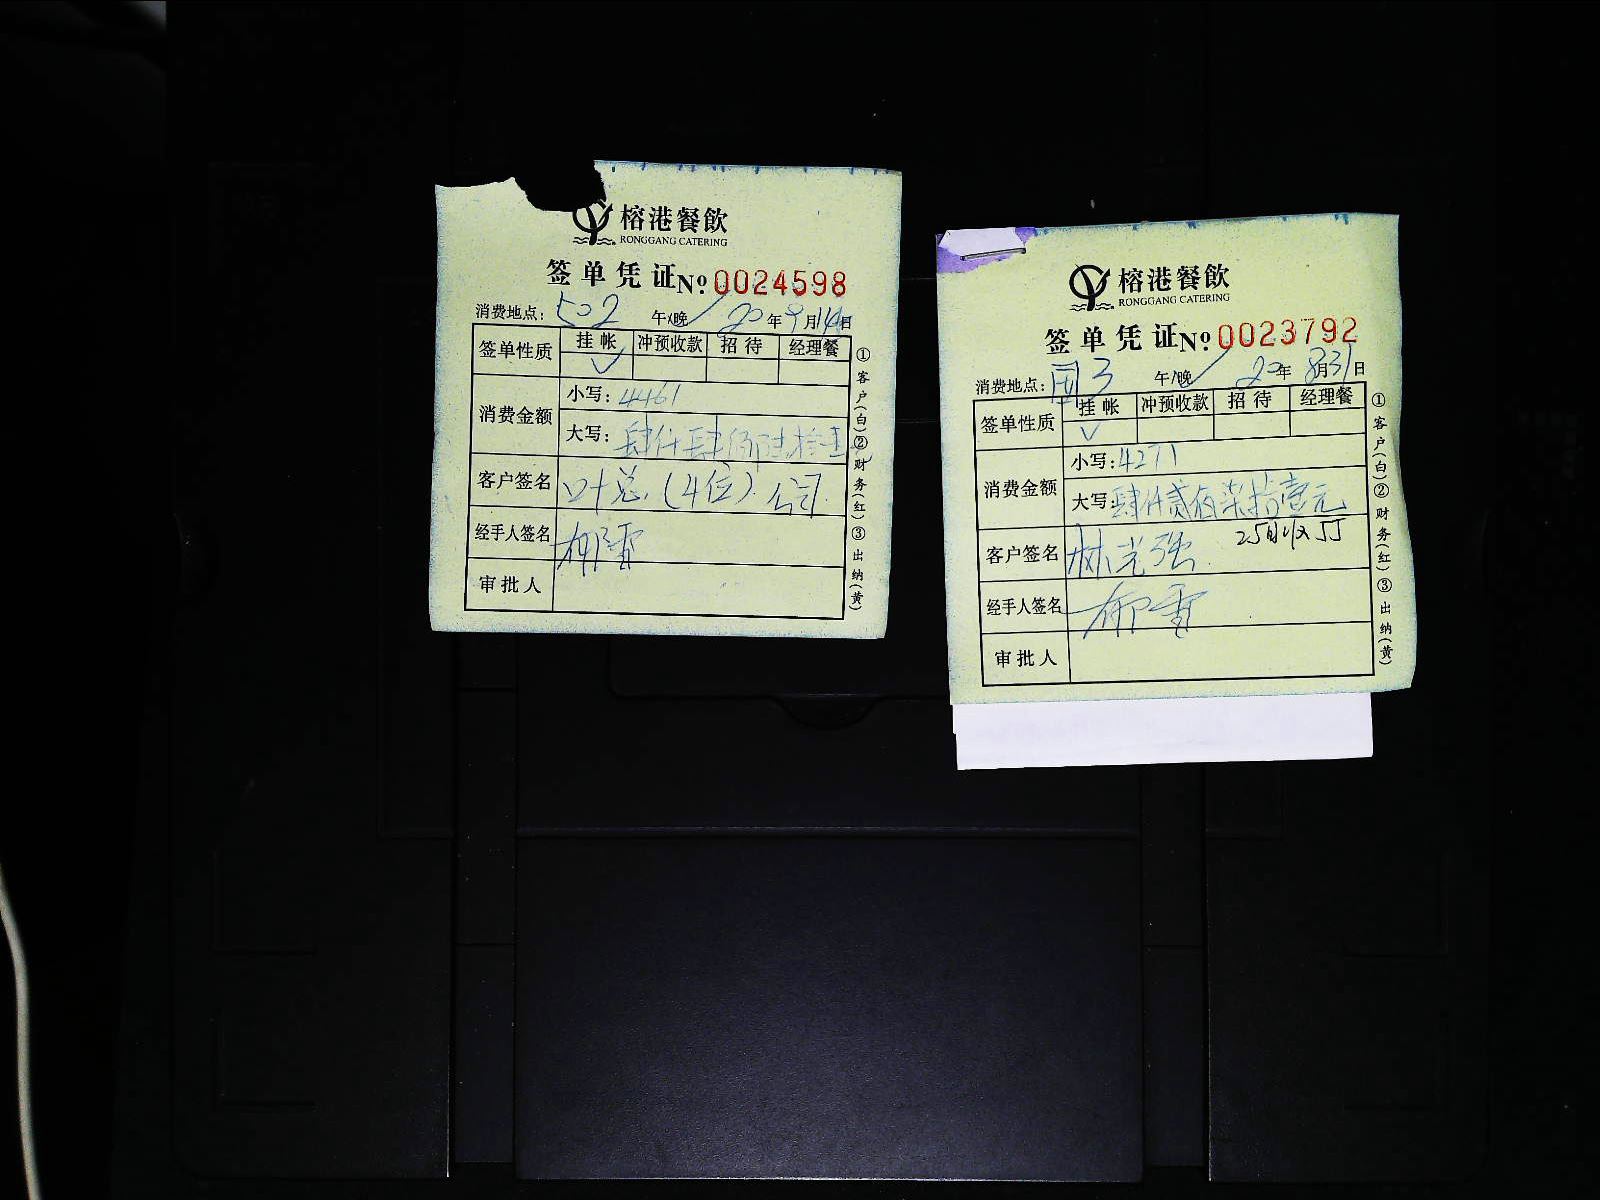 榕港餐飲
RONGGANG CATERING
签单凭证 No: 0024598
消费地点: 502 午/晚 ✓ 20年9月14日
签单性质 挂帐 冲预收款 招待 经理餐
✓
消费金额 小写: 4461
大写: 肆仟肆佰陆拾壹元
客户签名 叶总(4位)公司
经手人签名 郁雷
审批人
①客户(白)②财务(红)③出纳(黄)
榕港餐飲
RONGGANG CATERING
签单凭证 No: 0023792
消费地点: 国3 午/晚 ✓ 20年8月31日
签单性质 挂帐 冲预收款 招待 经理餐
✓
消费金额 小写: 4271
大写: 肆仟贰佰柒拾壹元
客户签名 林光强
经手人签名 郁雷
审批人
①客户(白)②财务(红)③出纳(黄)